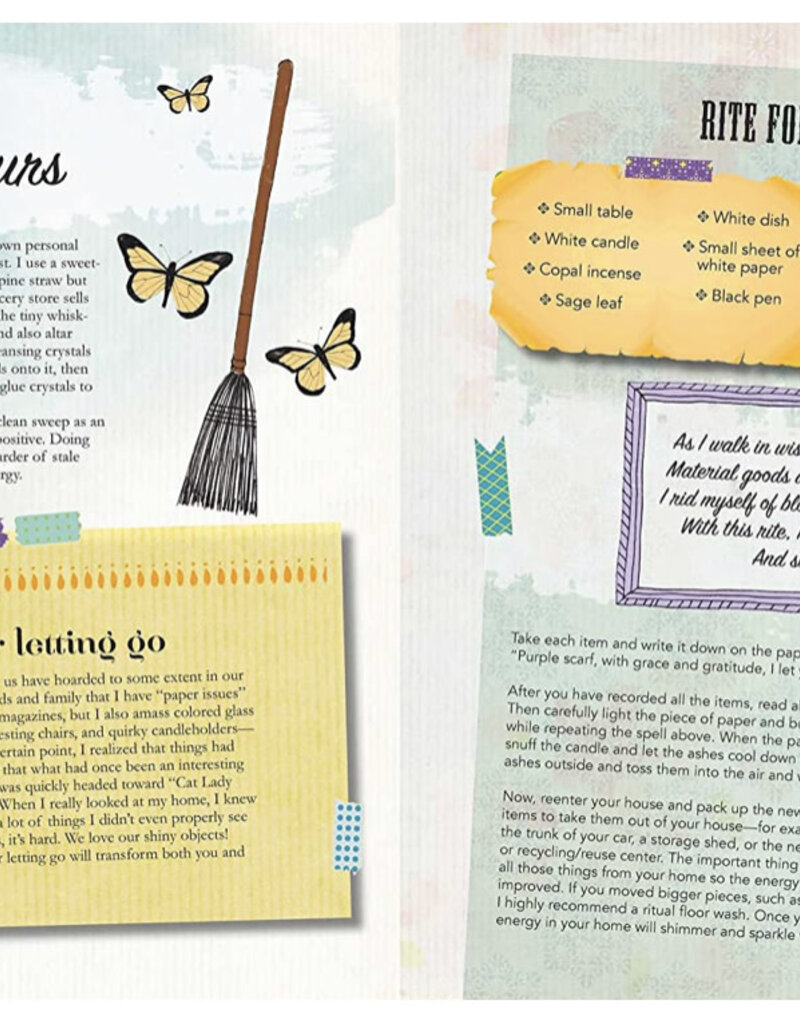 urs
own personal
st. I use a sweet-
pine straw but
cery store sells
he tiny whisk-
nd also altar
ansing crystals
ls onto it, then
glue crystals to
clean sweep as an
positive. Doing
urder of stale
rgy.
r letting go
us have hoarded to some extent in our
ds and family that I have “paper issues”
magazines, but I also amass colored glass
esting chairs, and quirky candleholders—
ertain point, I realized that things had
that what had once been an interesting
was quickly headed toward “Cat Lady
When I really looked at my home, I knew
a lot of things I didn’t even properly see
s, it’s hard. We love our shiny objects!
r letting go will transform both you and
RITE FO
Small table
White candle
Copal incense
Sage leaf
White dish
Small sheet of
white paper
Black pen
As I walk in wis
Material goods a
I rid myself of bl
With this rite,
And s
Take each item and write it down on the pap
“Purple scarf, with grace and gratitude, I let y
After you have recorded all the items, read a
Then carefully light the piece of paper and bu
while repeating the spell above. When the pa
snuff the candle and let the ashes cool down
ashes outside and toss them into the air and w
Now, reenter your house and pack up the new
items to take them out of your house—for exa
the trunk of your car, a storage shed, or the ne
or recycling/reuse center. The important thing
all those things from your home so the energy
improved. If you moved bigger pieces, such as
I highly recommend a ritual floor wash. Once y
energy in your home will shimmer and sparkle